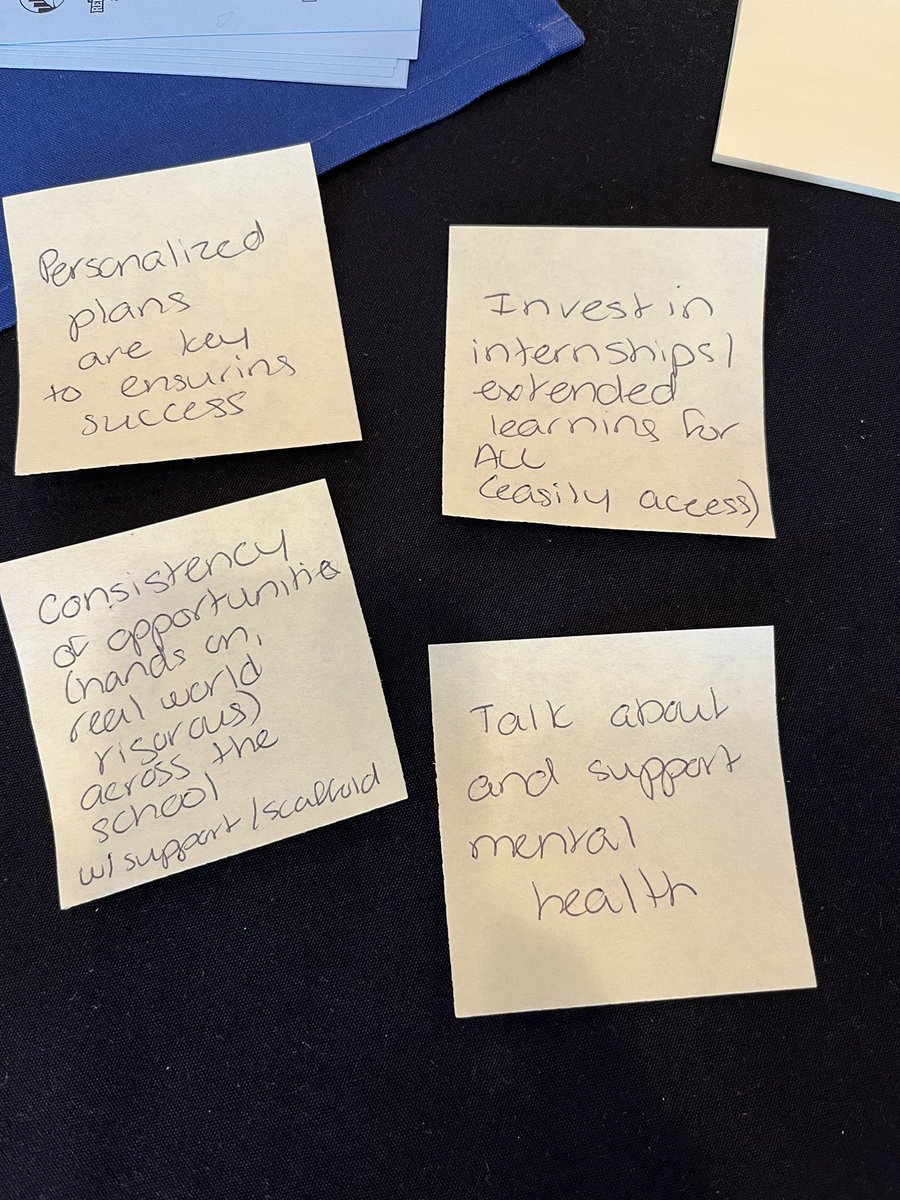 Personalized
plans
are key
to ensuring
success
Invest in
internships/
extended
learning for
ALL
(easily access)
Consistency
of opportunities
(hands on,
real world
rigorous)
across the
school
w/ support / scaffold
Talk about
and support
mental
health